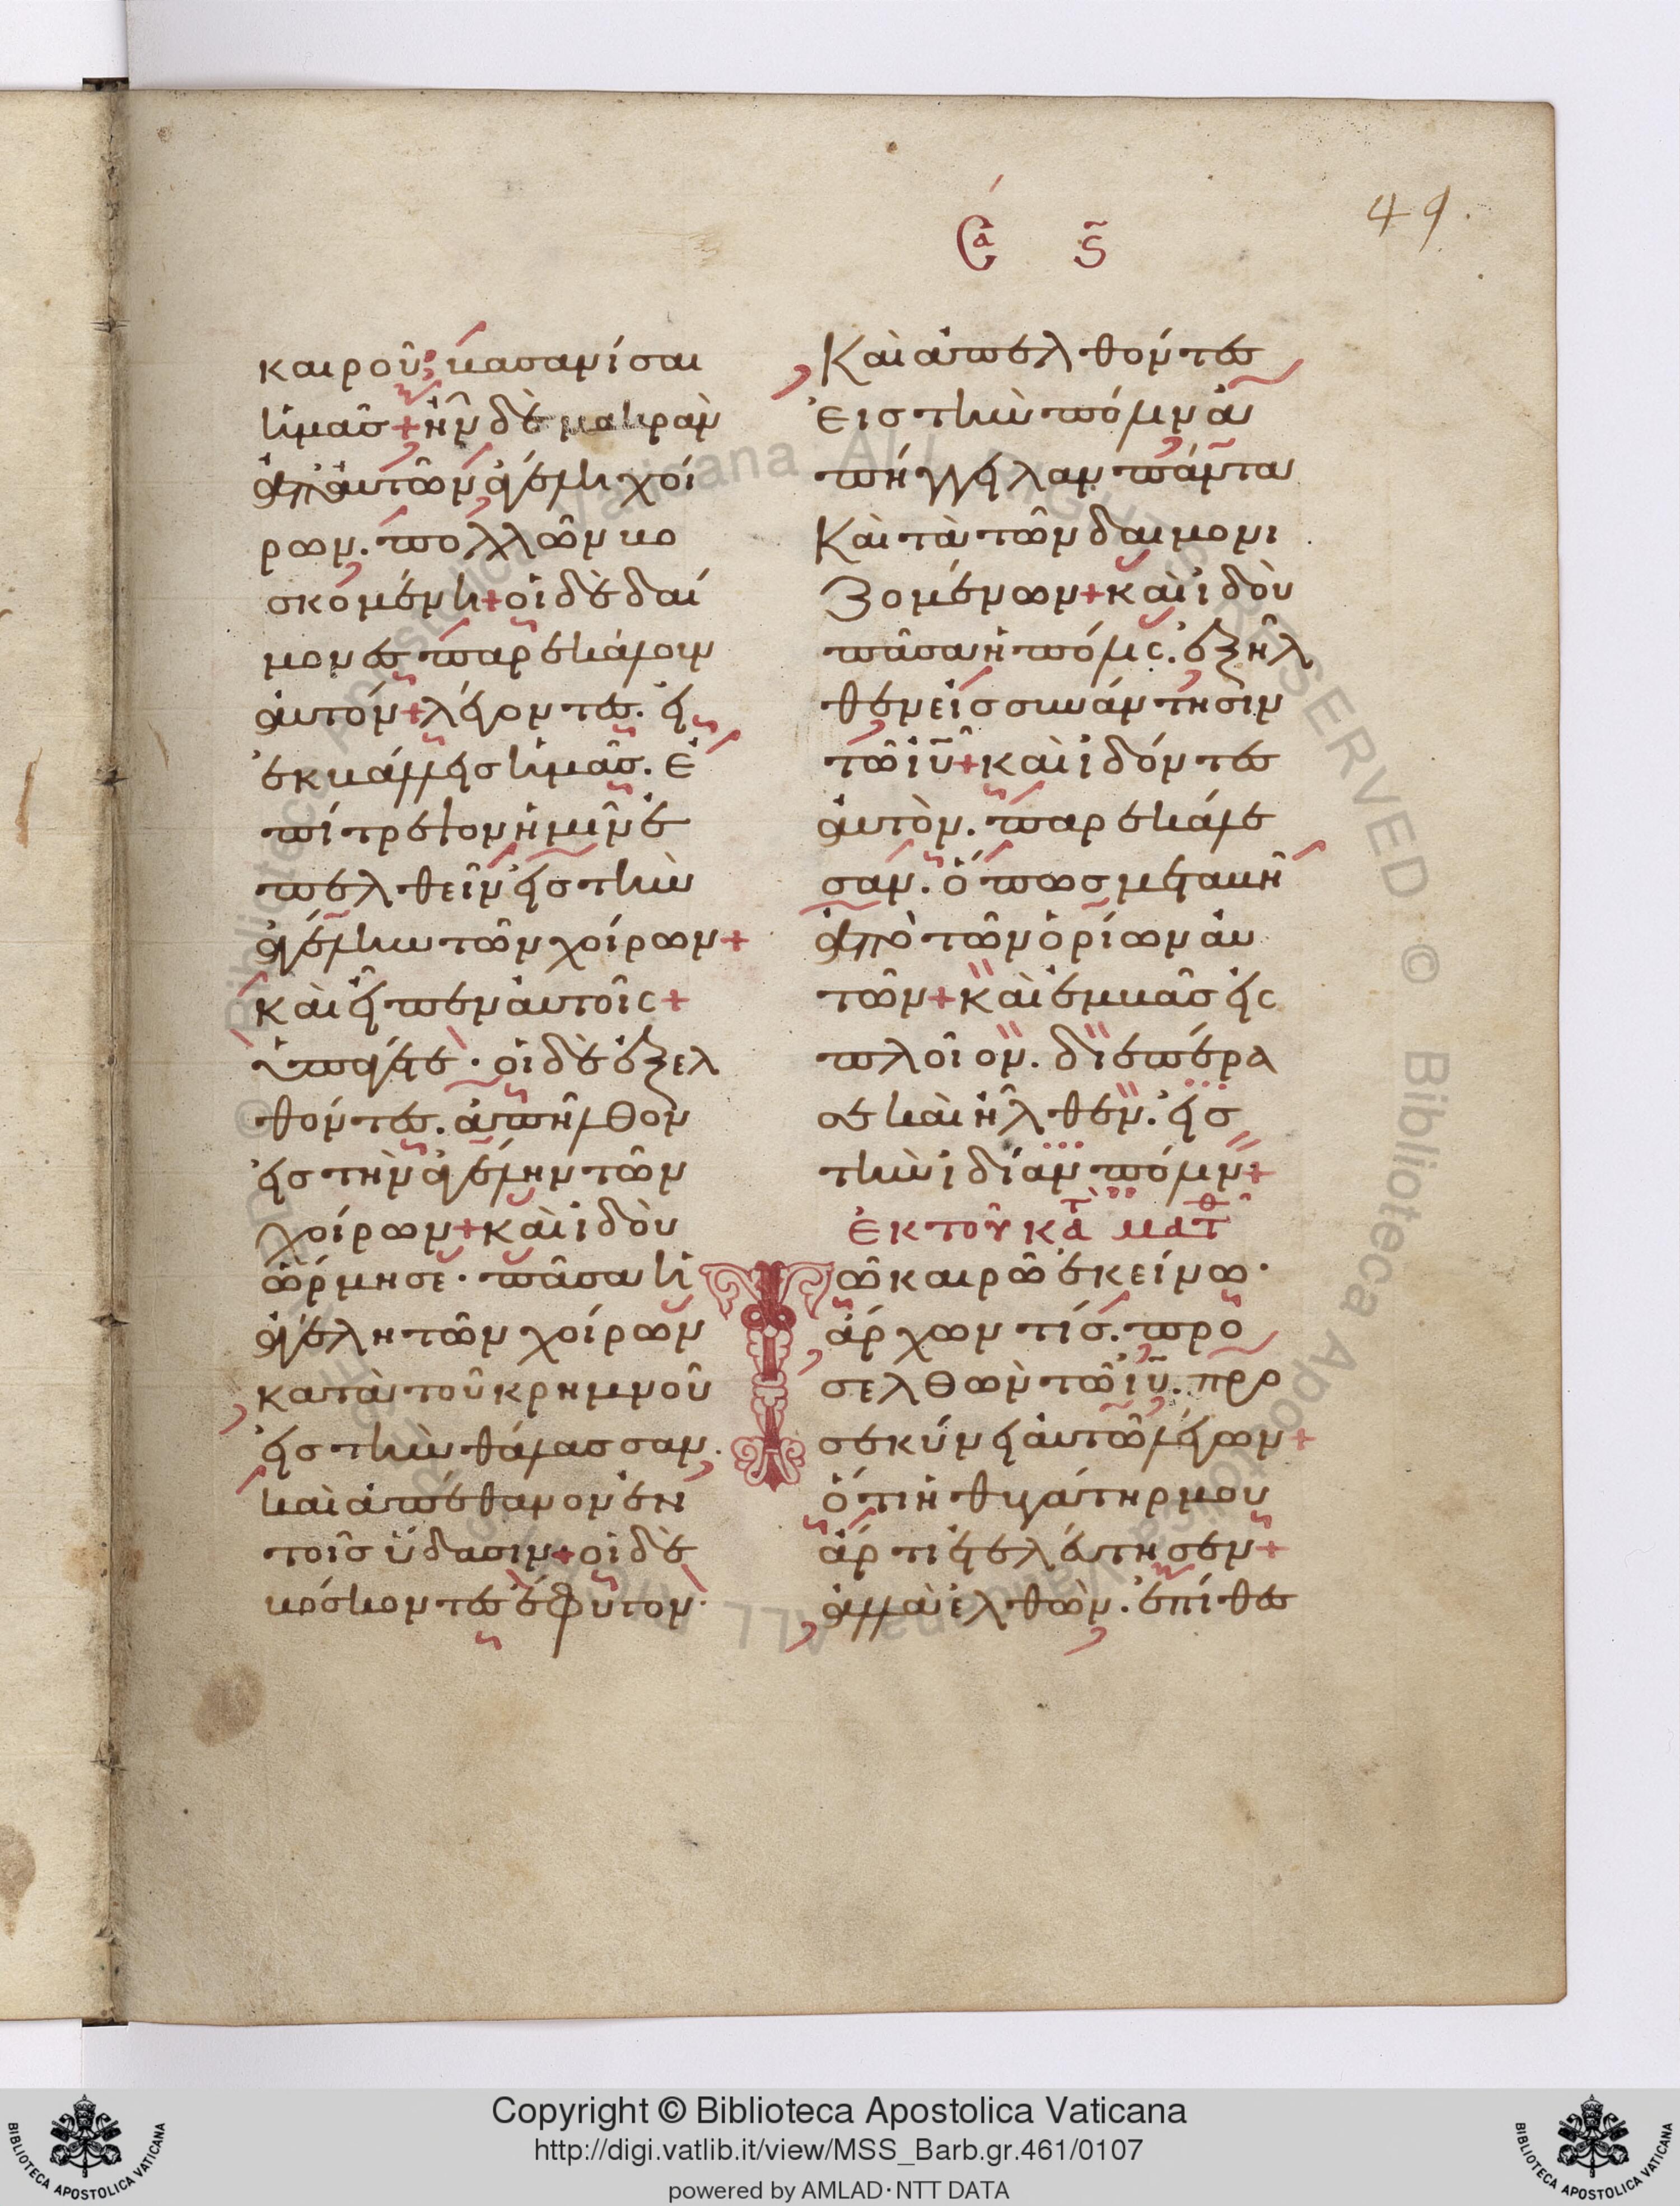 49.
Σα ϛ
καιροῦ; βασανίσαι
ἡμᾶσ + ἦν δὲ μακρὰν
ἀπ' ἀυτῶν ἀγέλη χοί
ρων. πολλῶν βο
σκομένη + οἱ δὲ δαί
μονεσ παρεκάλουν
ἀυτόν + λέγοντεσ. ἐι
ἐκβάλλεισ ἡμᾶσ. ἐ
πίτρεψον ἡμῖν ἀ
πελθεῖν ἐισ τὴν
ἀγέλην τῶν χοίρων +
καὶ εἶπεν ἀυτοῖς +
ὑπάγετε · οἱ δὲ ἐξελ
θόντεσ. ἀπῆλθον
ἐισ τὴν ἀγέλην τῶν
χοίρων + καὶ ἰδοὺ
ὥρμησε · πᾶσα ἡ
ἀγέλη τῶν χοίρων
κατὰ τοῦ κρημνοῦ
ἐισ τὴν θάλασσαν.
καὶ ἀπέθανον ἐν
τοῖσ ὕδασιν + οἱ δὲ
βόσκοντεσ ἔφυγον ·
Καὶ ἀπελθόντεσ
εἰσ τὴν πόλιν ἀ
πήγγειλαν πάντα
Καὶ τὰ τῶν δαιμονι
ζομένων + καὶ ἰδοὺ
πᾶσα ἡ πόλις. ἐξῆλ
θεν εἰσ συνάντησιν
τῶ ἰῦ + καὶ ἰδόντεσ
ἀυτὸν. παρεκάλε
σαν. ὅπωσ μεταβῆ
ἀπὸ τῶν ὁρίων ἀυ
τῶν + καὶ ἐμβᾶσ ἐις
πλοῖον. διεπέρα
σε καὶ ἦλθεν. ἐισ
τὴν ἰδίαν πόλιν +
ἐκ τοῦ κατὰ ματθ
Τῶ καιρῶ ἐκείνω ·
ἄρχων τίσ. προ
σελθὼν τῶ ἰῦ. προ
σεκύνει ἀυτῶ λέγων +
ὅτι ἡ θυγάτηρ μου
ἄρτι ἐτελέυτησεν +
ἀλλὰ ἐλθὼν. ἐπίθεσ
Copyright © Biblioteca Apostolica Vaticana
http://digi.vatlib.it/view/MSS_Barb.gr.461/0107
powered by AMLAD·NTT DATA